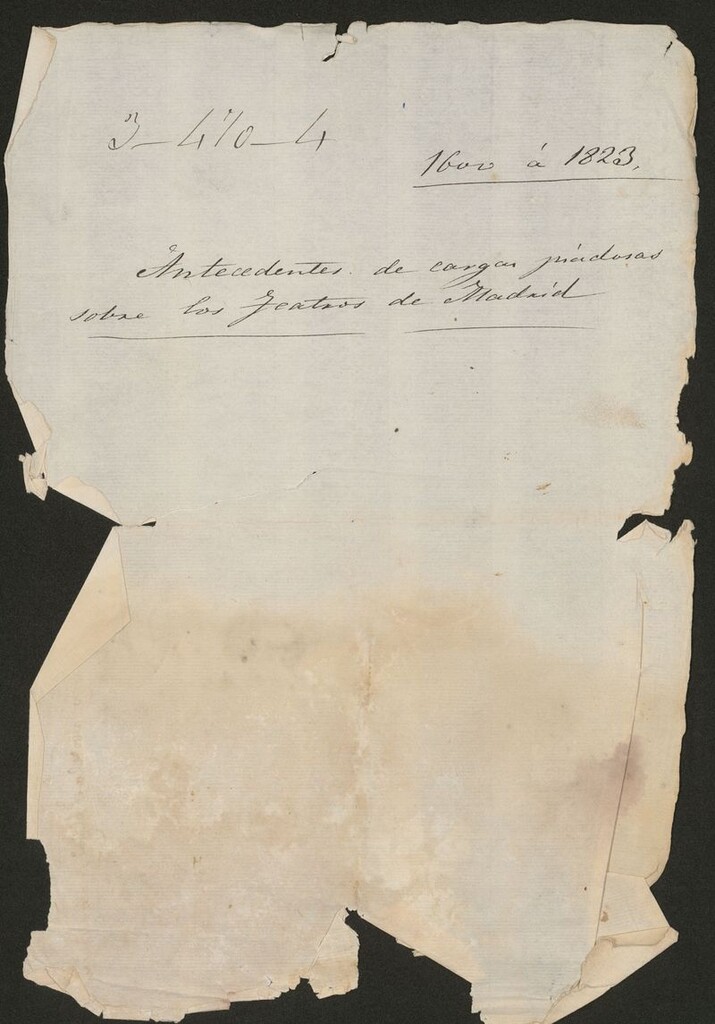 3-470-4
1600 á 1823.
Antecedentes de cargas piadosas
sobre los Teatros de Madrid